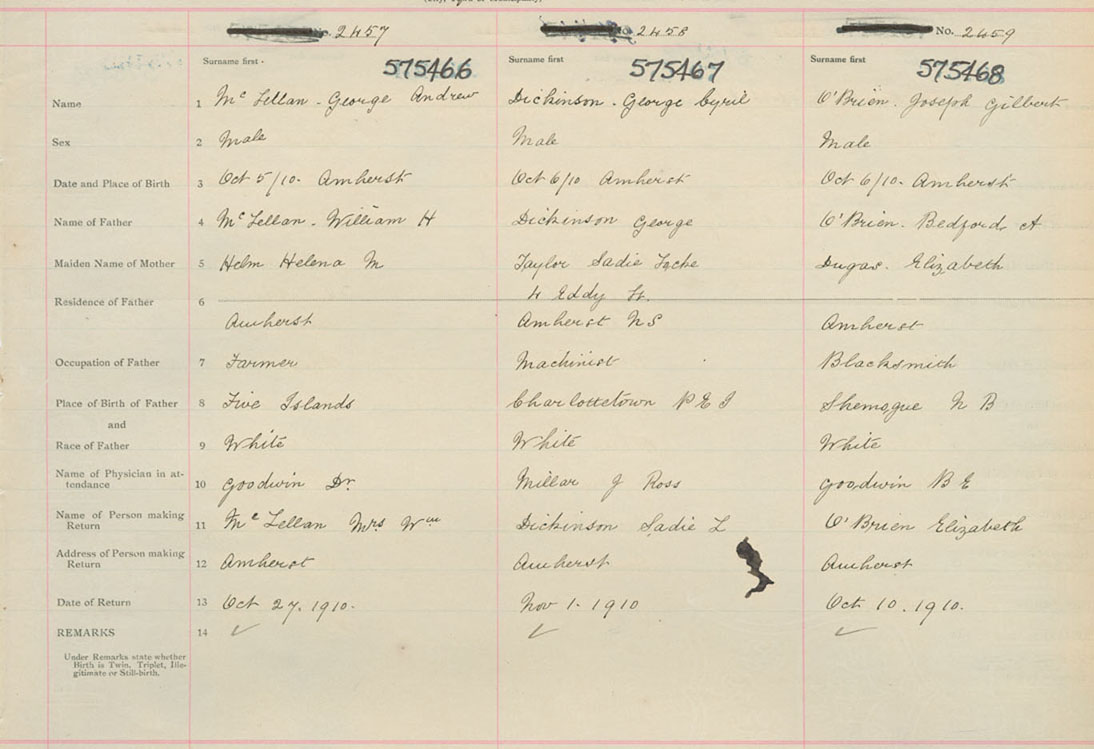 No. 2457 No. 2458 No. 2459
Surname first - Surname first Surname first
575466 575467 575468
Name 1 McLellan - George Andrew Dickinson - George Cyril O'Brien. Joseph Gilbert
Sex 2 Male Male Male
Date and Place of Birth 3 Oct 5/10 - Amherst Oct 6/10 Amherst Oct 6/10 - Amherst
Name of Father 4 McLellan - William H Dickinson George O'Brien. Bedford A
Maiden Name of Mother 5 Helm Helena M Taylor Sadie Dugas. Elizabeth
Residence of Father 6 4 Eddy St.
Amherst Amherst N S Amherst
Occupation of Father 7 Farmer Machinist Blacksmith
Place of Birth of Father 8 Five Islands Charlottetown P E I Shemogue N B
and
Race of Father 9 White White White
Name of Physician in at-
tendance 10 Goodwin Dr. Millar J Ross Goodwin B E
Name of Person making
Return 11 McLellan Mrs Wm Dickinson Sadie L O'Brien Elizabeth
Address of Person making
Return 12 Amherst Amherst Amherst
Date of Return 13 Oct 27. 1910. Nov 1 - 1910 Oct 10. 1910.
REMARKS 14
Under Remarks state whether
Birth is Twin, Triplet, Ille-
gitimate or Still-birth.